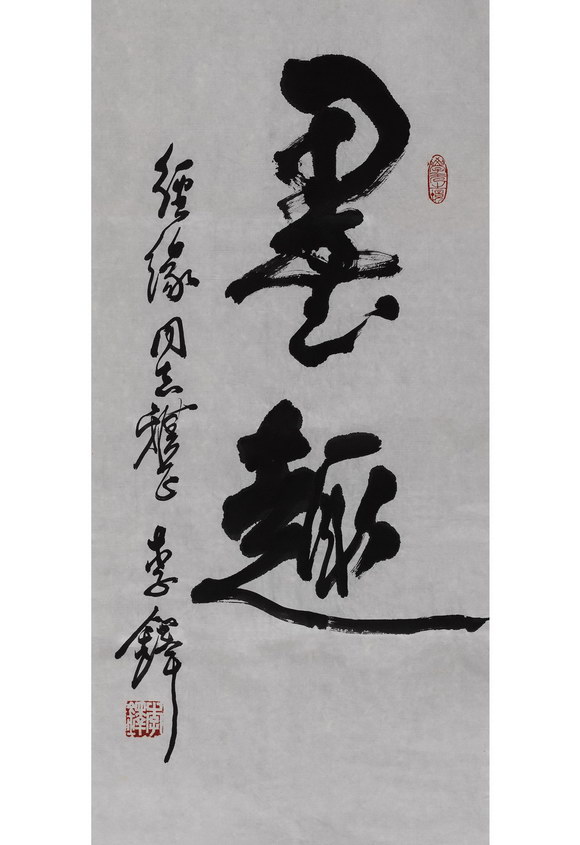 墨趣
經缘同志雅正 李鐸